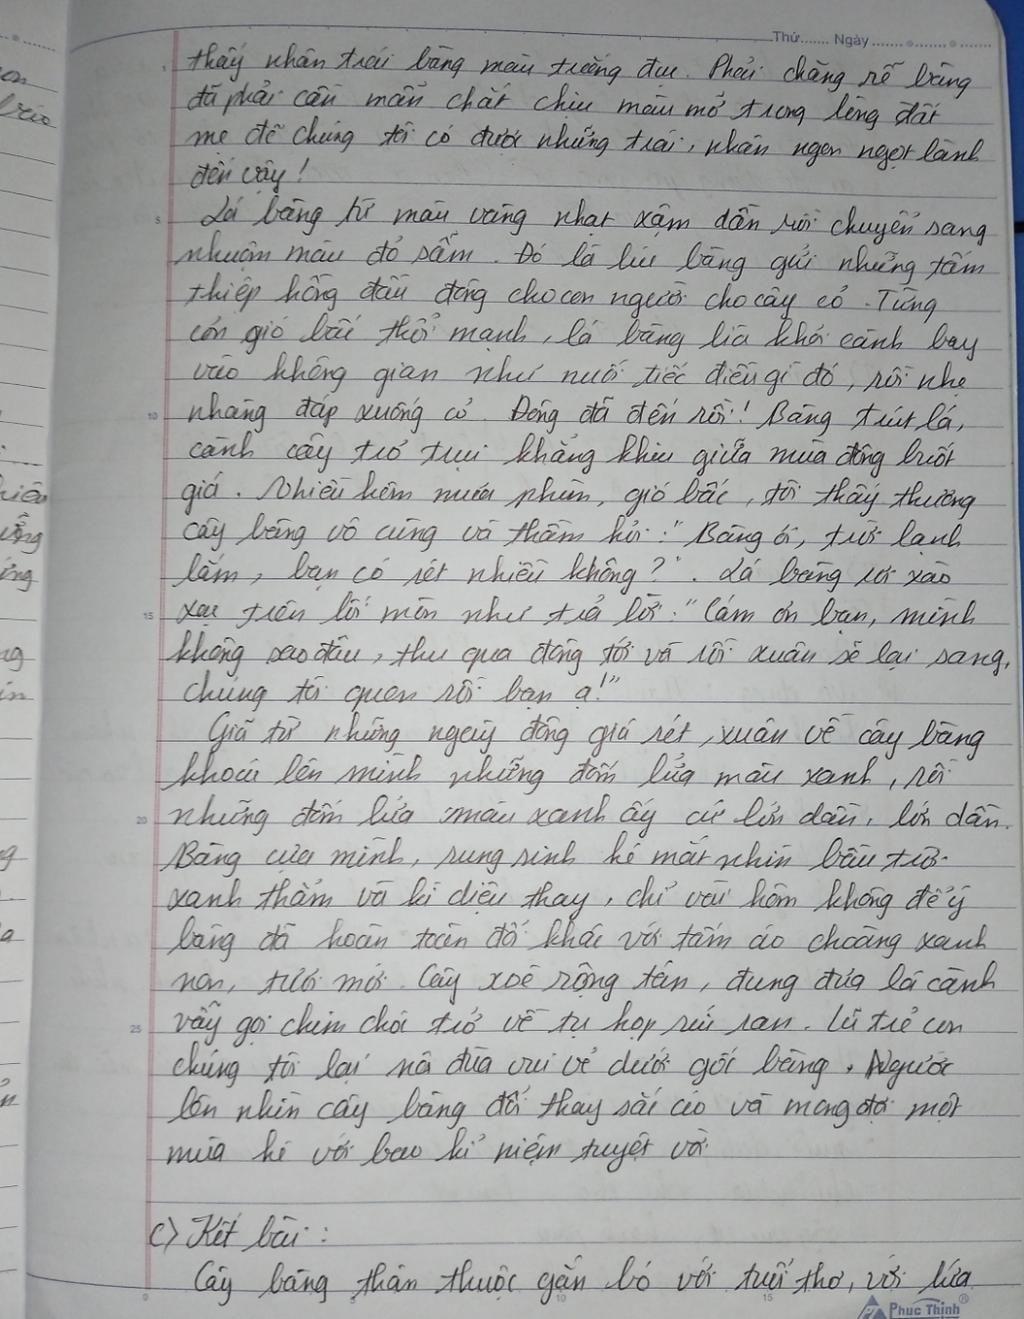 Thứ....... Ngày
thấy nhân trái bàng màu trắng đục. Phải chăng rễ bàng
đã phải cần mẫn chắt chiu màu mỡ trong lòng đất
mẹ để chúng tôi có được những trái, nhân ngon ngọt lành
đến vậy!
5 Lá bàng từ màu vàng nhạt xậm dần rồi chuyển sang
nhuộm màu đỏ sẫm. Đó là lúc bàng gửi những tấm
thiệp hồng đầu đông cho con người cho cây cỏ. Từng
cơn gió bấc thổi mạnh, lá bàng lìa khỏi cành bay
vào không gian như nuối tiếc điều gì đó, rồi nhẹ
10 nhàng đáp xuống cỏ. Đông đã đến rồi! Bàng trút lá,
cành cây trơ trụi khẳng khiu giữa mùa đông buốt
giá. Nhiều hôm mưa phùn, gió bấc, tôi thấy thương
cây bàng vô cùng và thầm hỏi: "Bàng ơi, trời lạnh
lắm, bạn có rét nhiều không?". Lá bàng rơi xào
15 xạc trên lối mòn như trả lời: "Cám ơn bạn, mình
không sao đâu, thu qua đông tới và rồi xuân sẽ lại sang,
chúng tôi quen rồi bạn ạ!"
Giã từ những ngày đông giá rét, xuân về cây bàng
khoác lên mình những đốm lửa màu xanh, rồi
20 những đốm lửa màu xanh ấy cứ lớn dần, lớn dần.
Bàng cựa mình, rung rinh hé mắt nhìn bầu trời
xanh thẳm và kì diệu thay, chỉ vài hôm không để ý
bàng đã hoàn toàn đổi khác với tấm áo choàng xanh
non, tươi mới. Cây xoè rộng tán, đung đưa lá cành
25 vẫy gọi chim chóc trở về tụ họp ríu ran. Lũ trẻ con
chúng tôi lại nô đùa vui vẻ dưới gốc bàng. Người
lớn nhìn cây bàng đổi thay sắc áo và mong đợi một
mùa hè với bao kỉ niệm tuyệt vời
c) Kết bài:
Cây bàng thân thuộc gắn bó với tuổi thơ, với lứa
0 5 10 15
Phuc Thinh®